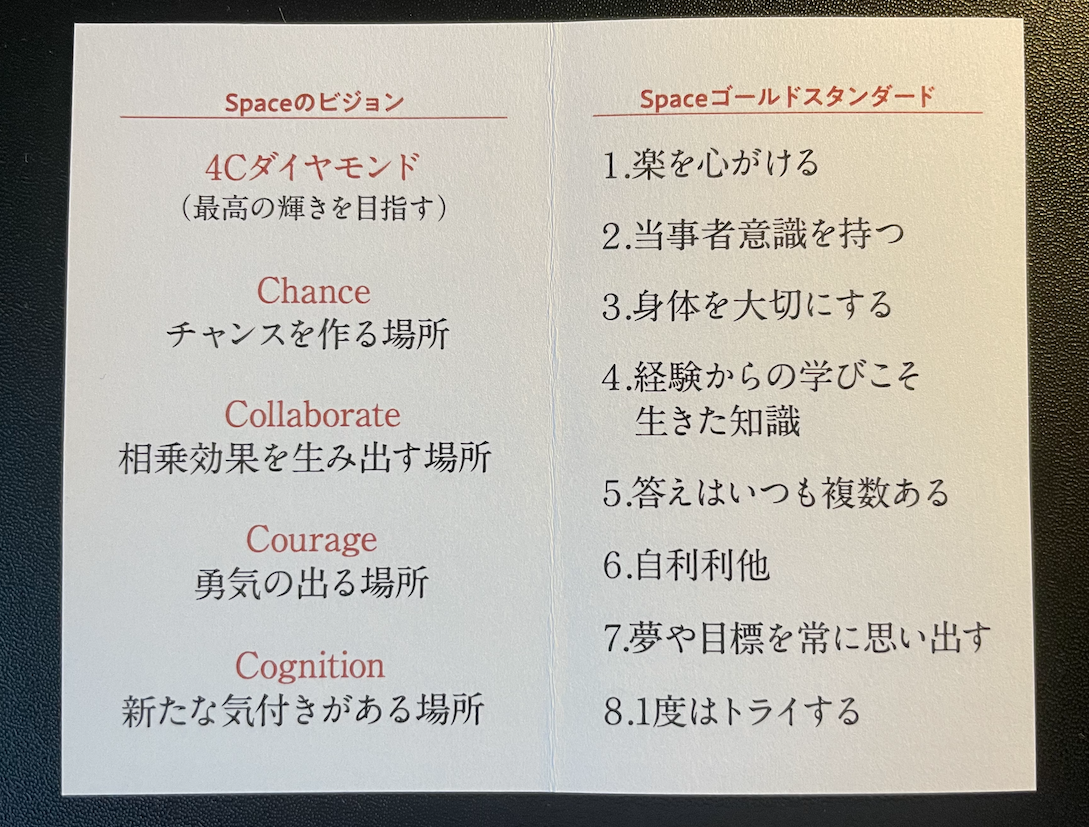 Spaceのビジョン
4Cダイヤモンド
（最高の輝きを目指す）
Chance
チャンスを作る場所
Collaborate
相乗効果を生み出す場所
Courage
勇気の出る場所
Cognition
新たな気付きがある場所
Spaceゴールドスタンダード
1.楽を心がける
2.当事者意識を持つ
3.身体を大切にする
4.経験からの学びこそ
生きた知識
5.答えはいつも複数ある
6.自利利他
7.夢や目標を常に思い出す
8.1度はトライする